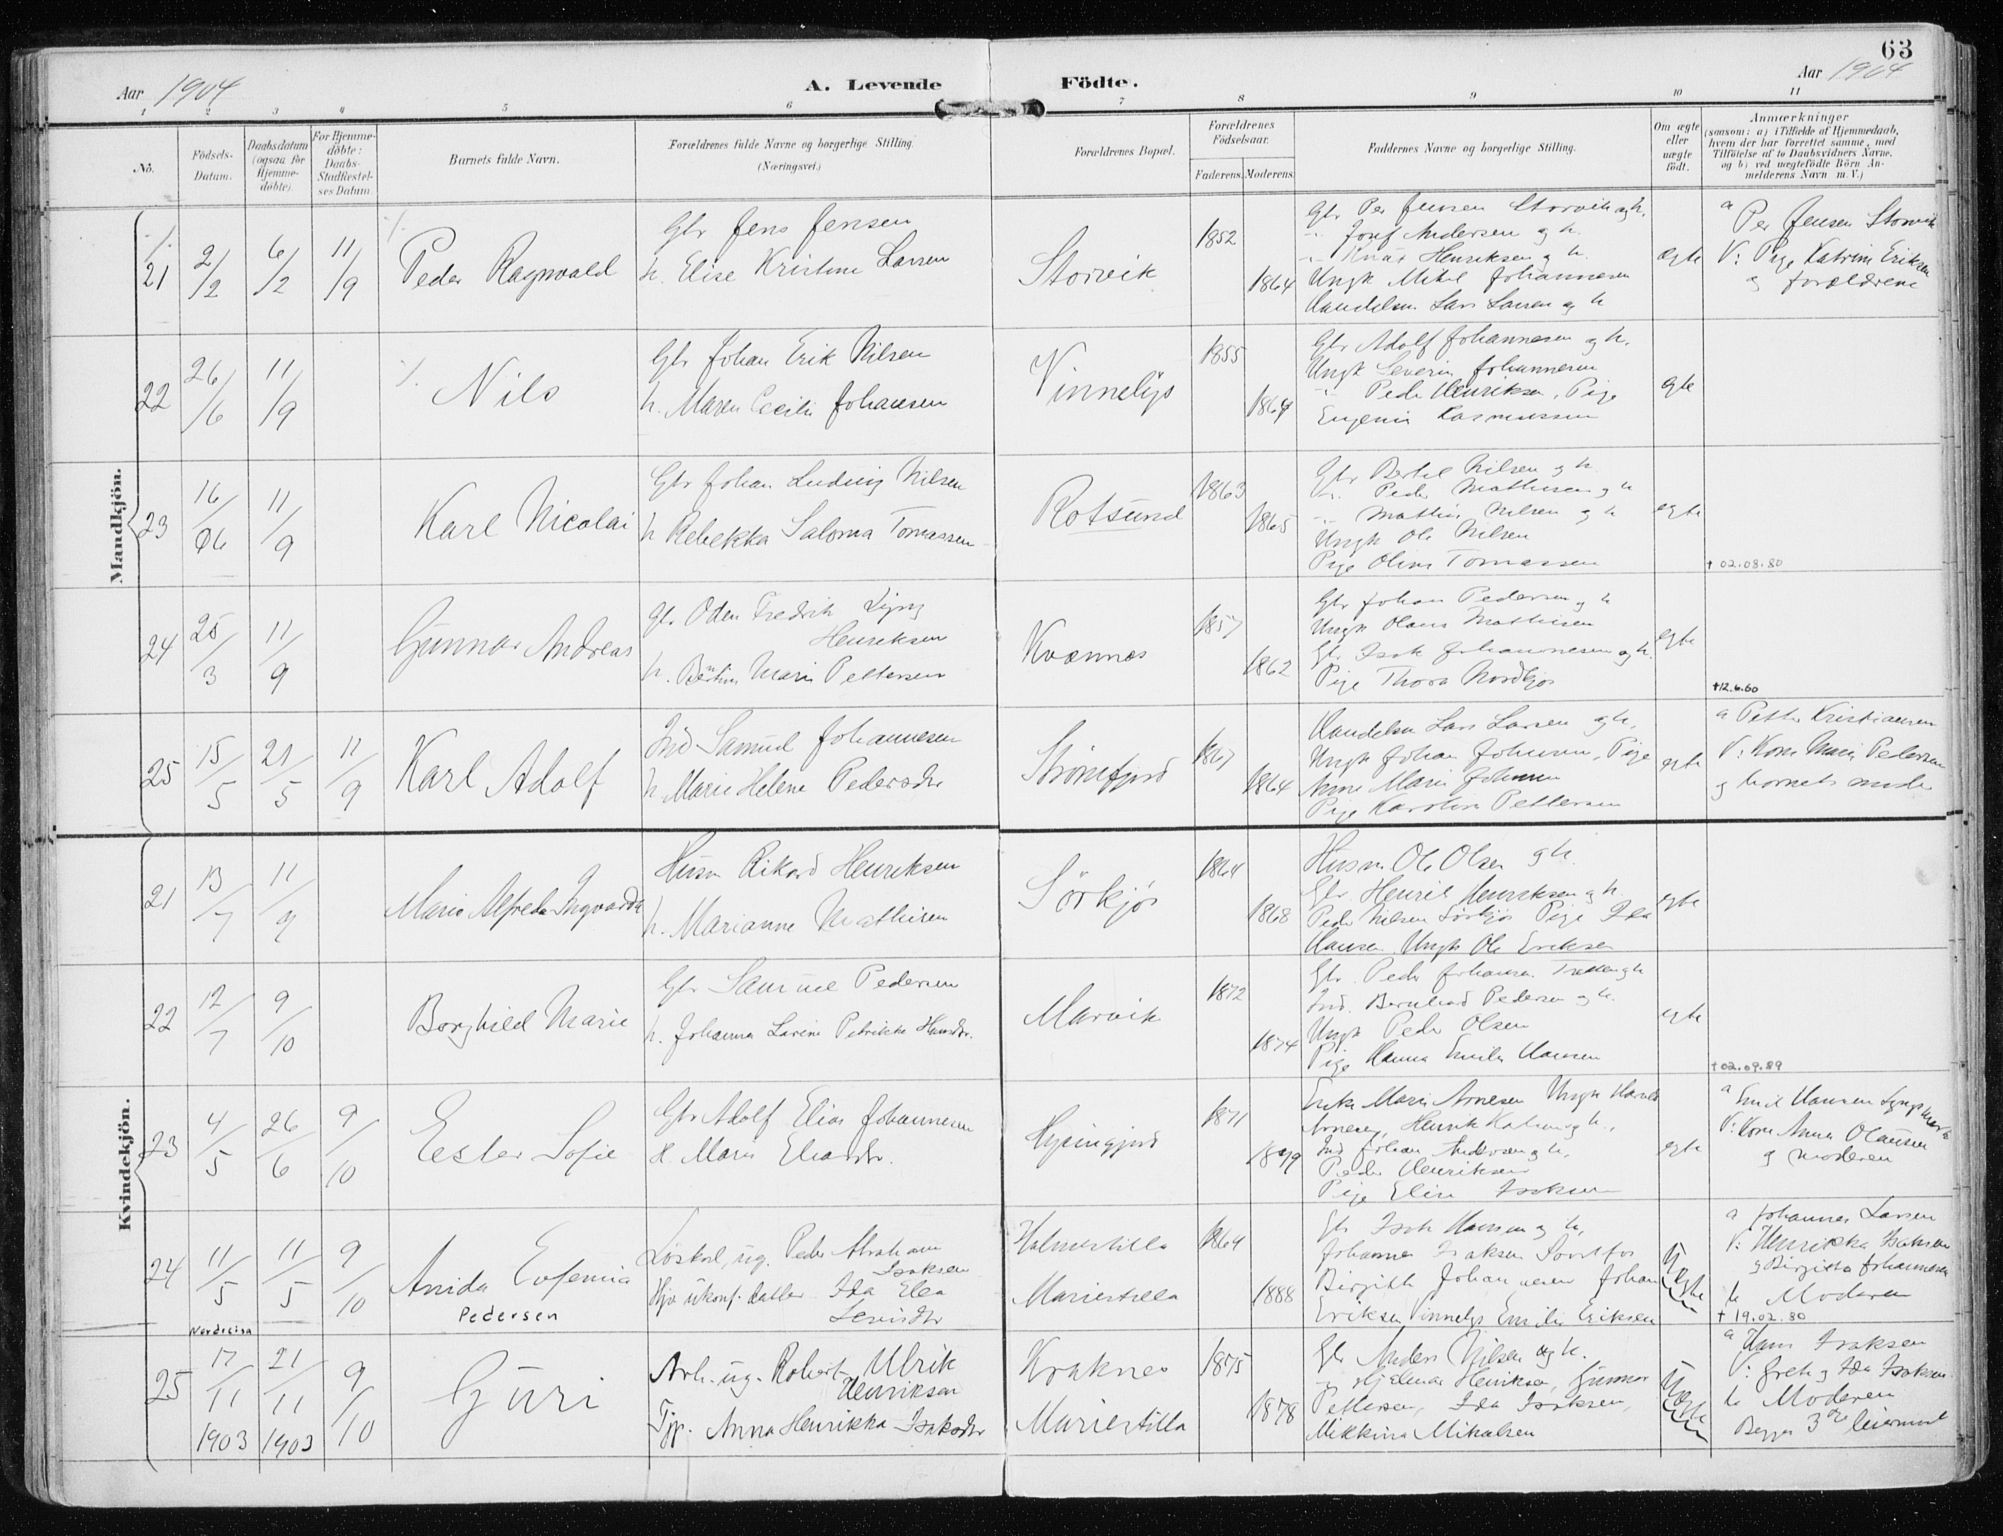 63
Aar 1904
A. Levende Födte.
Aar 1904
1 2 3 4 5 6 7 8 9 10 11
No.
Födsels-Datum.
Daabsdatum (ogsaa for Hjemme-döbte).
For Hjemme-döbte: Daabs-Stadfæstel-ses Datum.
Barnets fulde Navn.
Forældrenes fulde Navne og borgerlige Stilling.
(Næringsvei.)
Forældrenes Bopæl.
Forældrenes Födselsaar.
Faderens. Moderens.
Faddernes Navne og borgerlige Stilling.
Om ægte eller uægte födt.
Anmærkninger
(saasom: a) i Tilfælde af Hjemmedaab,
hvem der har forrettet samme, med
Tilföielse af to Daabsvidners Navne,
og b) ved uægtefödte Börn An-
melderens Navn m. V.)
Mandkjön.
21
2/12 6/12 11/9
Peder Ragnvald
Gbr Jens Jensen
h. Elise Kristine Larsen
Storvik
1852
1864
Gbr Per Jensen Storvik og h.
" Josef Andersen og h.
" Knut Henriksen og h.
Ungk Mikal Johannesen
Handelsm Lars Larsen og h
ægte
a Per Jensen Storvik
V: Pige Katrine Eriksen
og forældrene
22
26/6 11/9
Nils
Gbr Johan Erik Nilsen
h. Maren Cecilie Johansen
Vinnelys
1855
1864
Gbr Adolf Johannesen og h.
Ungk Severin Johannesen
" Peder Henriksen, Pige
Eugenie Rasmussen
egte
23
16/06 11/9
Karl Nicolai
Gbr Johan Ludvig Nilsen
h Rebekka Saloma Tomassen
Rotsund
1863
1865
Gbr Bertel Nilsen og h.
" Peder Mathisen og h
" Mathis Nilsen og h
Ungk Ole Nilsen
Pige Oline Tomassen
egte
† 02.08.80
24
25/3 11/9
Gunnar Andreas
gbr Oden Fredrik Lyng
Henriksen
h. Bentine Marie Pettersen
Kvænnes
1857
1862
Gbr Johan Pedersen og h
Ungk Olaus Mathisen
Gbr Isak Johannesen og h.
Pige Thora Nordkjos
egte
†12.6.60
25
15/5 21/5 11/9
Karl Adolf
Ind Samuel Johannesen
h Marie Helene Pedersdtr
Strömfjord
1867
1864
Handelsm Lars Larsen og h.
Ungk Johan Johnsen, Pige
Anne Marie Johnsen
Pige Karoline Pettersen
egte
a Petter Kristiansen
V: Kone Marie Pedersen
og barnets moder
Kvindekjön.
21
13/7 11/9
Marie Alfreda Ingvarda
Husm Rikard Henriksen
h. Marianne Mathisen
Sörkjos
1864
1868
Husm Ole Olsen og h.
Gbr Henrik Henriksen og h.
Peder Nilsen Sörkjos Pige Ida
Hansen Ungk Ole Eriksen
egte
22
12/7 9/10
Borghild Marie
Gbr Samuel Pedersen
h. Johanna Lovine Petrikke Hansdtr.
Marvik
1872
1874
Gbr. Peder Johansen og h
Ind. Bernhard Pedersen og h.
Ungk Peder Olsen
Pige Hanna Emilie Hansen
egte
† 02.09.89
23
4/5 26/6 9/10
Ester Sofie
Gbr Adolf Elias Johannesen
H. Marie Eliasdtr.
1871
1879
Marie Arnesen Ungk Harald
Arnesen, Henrik og h.,
Ind Johan Andersen og h,
Peder Henriksen
Pige Elise Isaksen
egte
a Emil Hansen
V: Kone Anna Olausen
og moderen
24
11/5 11/5 9/10
Anida Eufemia
Pedersen
Löskarl, ug. Peder Abraham
Isaksen
Hjv ukonf. datter Ida Elea
Levisdtr
Holmestilla
Mariestilla
1864
1888
Gbr Isak Hansen og h,
Johannes Isaksen Storfos
Birgitte Johannesen Johan
Eriksen Vinnelys Emilie Eriksen
Uægte
a Johannes Larsen
V: Henrikka Isaksen
og Birgitta Johannesen
b Moderen
† 19.02.80
25
Nordreisa
17/11 1903 21/11 1903 9/10
Guri
Arb. ug. Robert Ulrik
Henriksen
Tjp. Anna Henrikka Isaksdtr
Kraknes
Mariestilla
1875
1878
Gbr Anders Nilsen og h.
" Hjalmar Henriksen, Gunnar
Pettersen, Ida Isaksen,
Mikkine Mikalsen
Uægte
a Hans Isaksen
V: Grete og Ida Isaksen
b Moderen
Begges 3die leiermaal